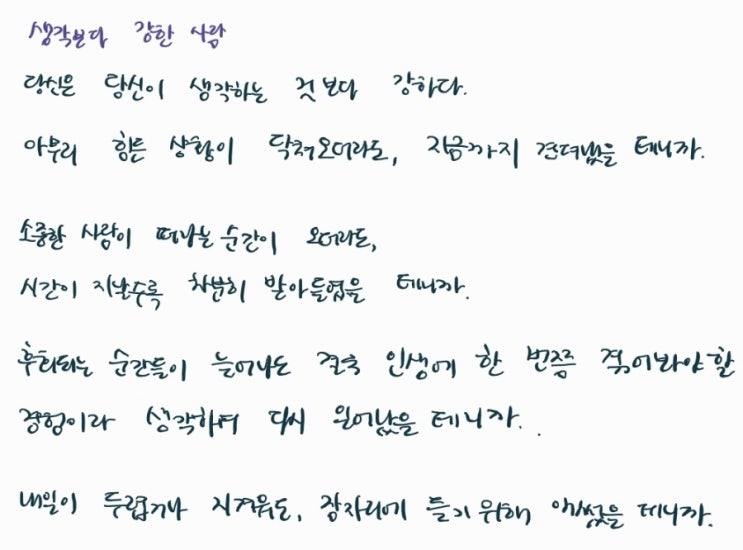 생각보다 강한 사람
당신은 당신이 생각하는 것보다 강하다.
아무리 힘든 상황이 닥쳐오더라도, 지금까지 견뎌냈을 테니까.
소중한 사람이 떠나는 순간이 오더라도,
시간이 지날수록 차분히 받아들였을 테니까.
후회되는 순간들이 늘어나도 결국 인생에 한 번쯤 겪어봐야 할
경험이라 생각하며 다시 일어났을 테니까.
내일이 두렵거나 지겨워도, 잠자리에 들기 위해 애썼을 테니까.